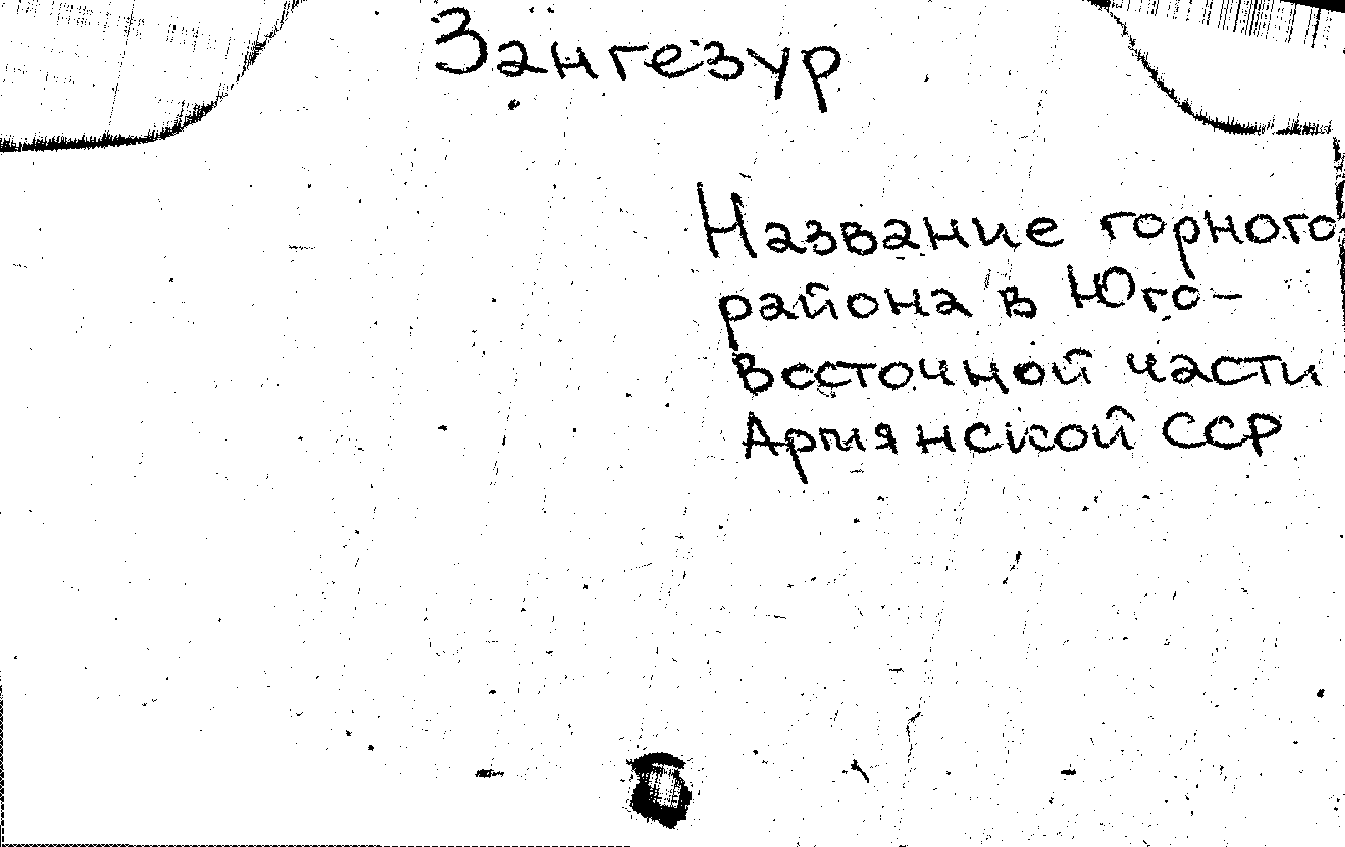 Зангезур
Название горного
района в Юго-
Восточной части
Армянской ССР